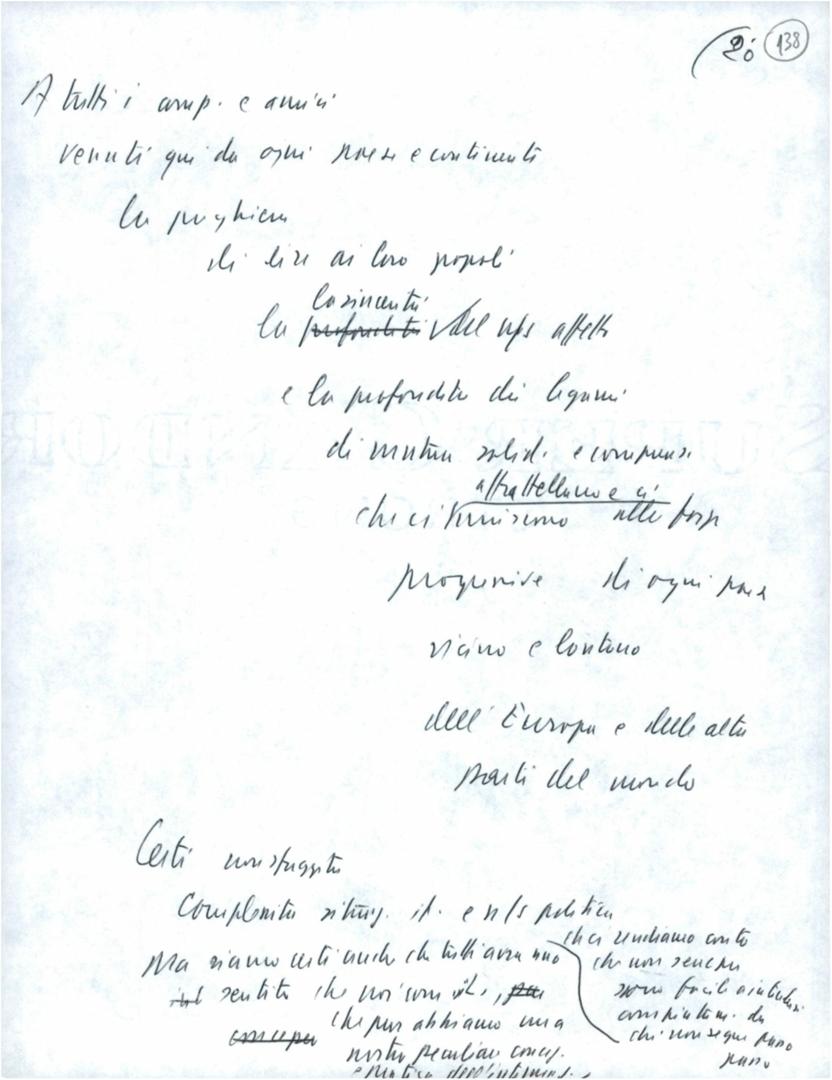 20 138
A tutti i comp. e amici
venuti qui da ogni paese e continente
la preghiera
di dire ai loro popoli
la sincerità
la profondità del ns/ affetto
e la profondità dei legami
di mutua solid. e comprens.
affratellano e ci
che ci uniscono alle forze
progressive di ogni paese
vicino e lontano
dell'Europa e delle altre
parti del mondo
Certi non sfuggita
Complessità situaz. it. e n/s politica
Ma siamo certi anche che tutti avranno
sentito che noi com.
concepi che pur abbiamo una
nostra peculiare concez.
e pratica dell'internaz.
che ci rendiamo conto
che non sempre
sono facili a intendersi
compiutam. da
chi non segue passo
passo